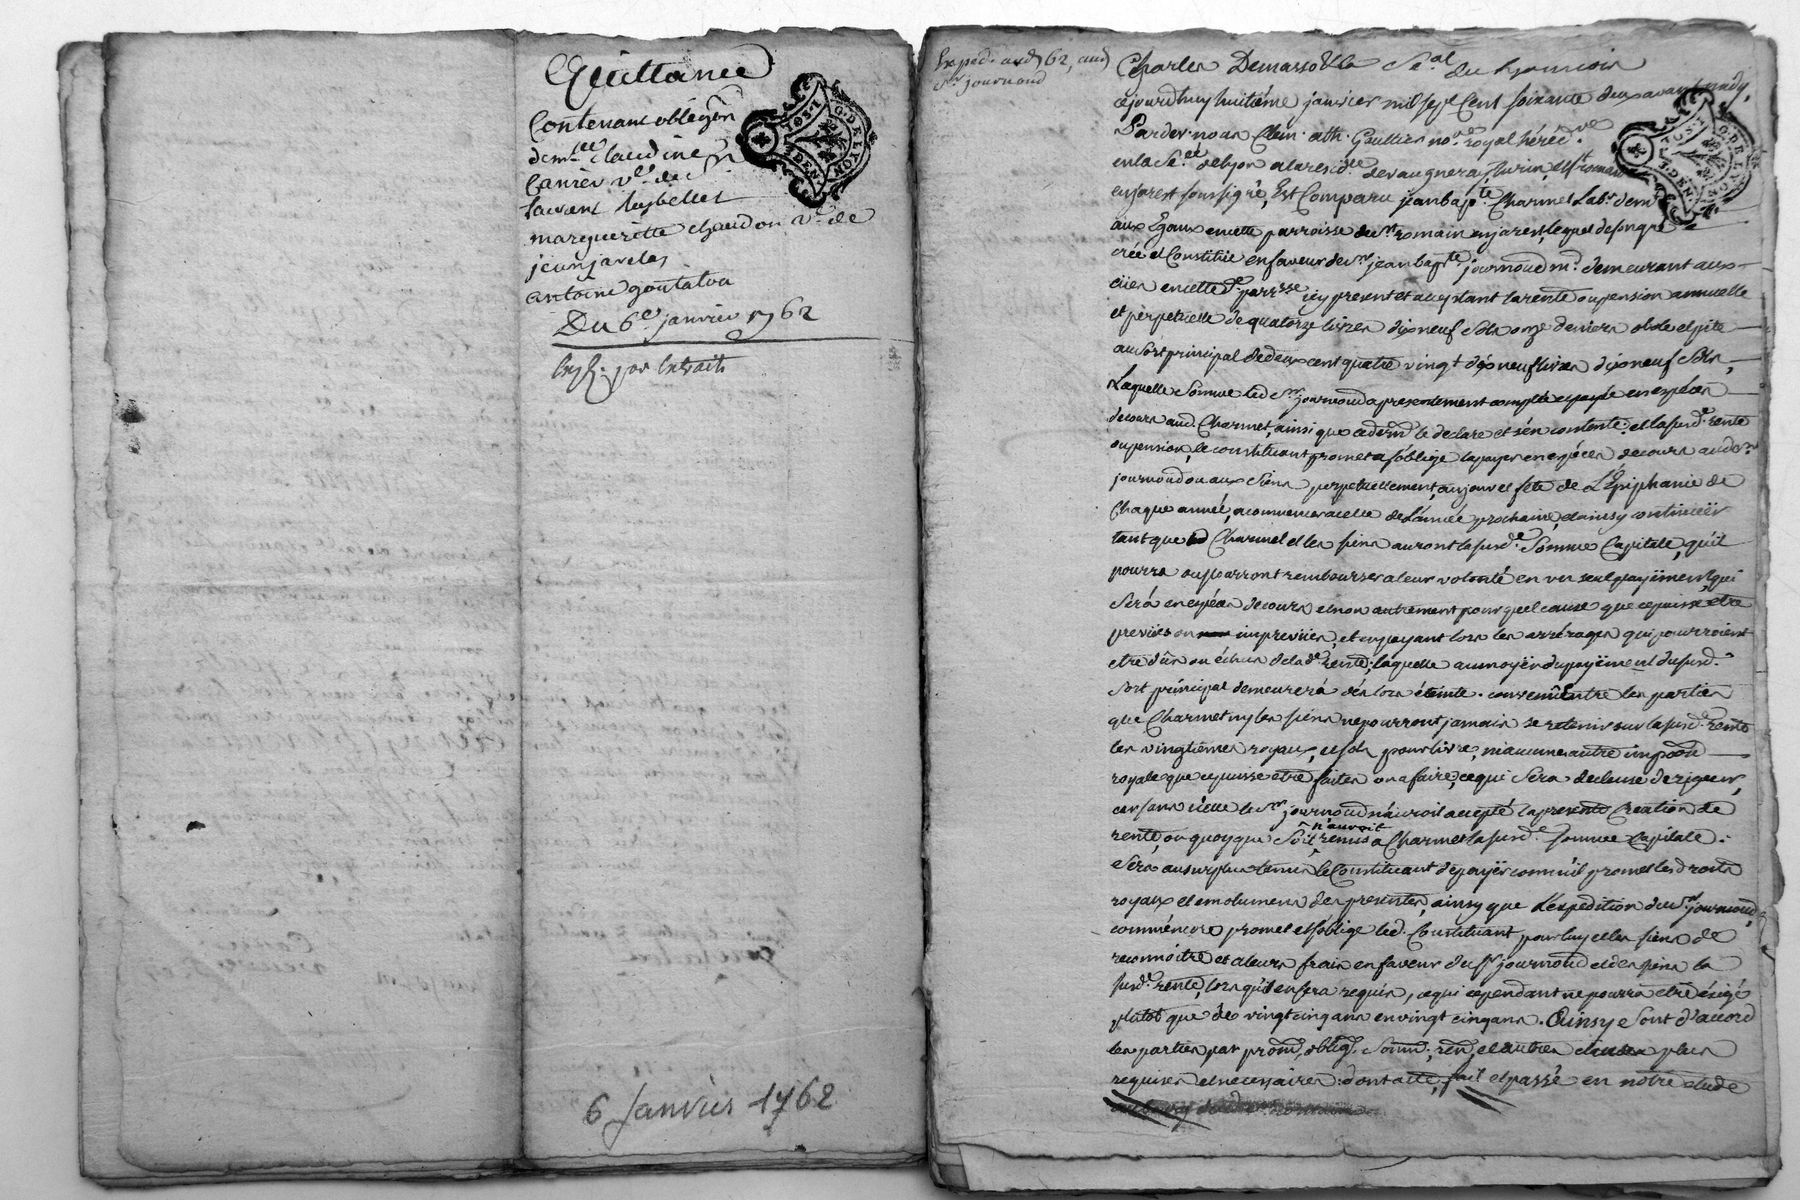 Quittance
Contenant obligõn
dem.lle Claudine
Carrier v.e de
laurent
margueritte chaudon v.e de
jean javelas
antoine goutalou
Du 6.e janvier 1762
Exp. par Extrait
6 Janvier 1762
G. DE LYON
DEN.
Exped. aud. 62, aud.
S.r journoud
Charles Demasso
du Lyonnois
cejourdhuy huitiéme janvier mil sept Cent soixante deux avant midy,
Pardev. nous Clem. ath. Gaultier no.re royal héréd.re
en la Sé.ée de lyon a la resid.ce de vaugneray, thurin, et S.t romain
en jarest soussigné, Est Comparu jean bap.te Charmet Lab.r dem.t
aux Egaux en cette parroisse de S.t romain en jarest, lequel de son gré
crée et Constitüe en faveur de S.r jean bapt.te journoud m.d demeurant aux
en cette d.e parr.sse icy present et aceptant la rente ou pension annuelle
et perpetuelle de quatorze livres dixneuf sols onze deniers obole et pite
au sort principal de deux cent quatre vingt dix neuf livres dixneuf sols,
Laquelle Somme led. S.r journoud a presentement comptée et payée en espéces
de cours aud. Charmet, ainsi que ce dern.r le declare et s'en contente: et lasusd.e rente
ou pension, le constituant promet et s'oblige la payer en espéces de cours aud. S.r
journoud ou aux Siens perpetuellement, au jour et fête de L'Épiphanie de
Chaque année, a commencer a celle de L'année prochaine, et ainsy continüer
tant que led. Charmet et les siens auront lasusd.e Somme Capitale, qu'il
pourra ou pourront rembourser a leur volonté en un seul payïement, qui
Sera en espéces de cours et non autrement pour quel cause que ce puisse etre
previies ou impreviies, et en payant lors les arrérages qui pourroient
etre dûs ou échus de lad.e rente; laquelle au moyën du payïement du susd.
Sort principal demeurera dès lors éteinte. convenu Entre les parties
que Charmet ny les siens ne pourront jamais se retenir sur lasusd.e rente
les vingtiémes royaux, et sols pour livre, ni aucune autre impoõn
royale que ce puisse etre, faites ou a faire, ce qui Sera de clause de rigueur,
car sans icelle le S.r journoud n'auroit accepté la presente Creation de
rente, ou quoy que Soit, n'auroit remis a Charmet lasusd.e somme Capitale:
Sera au surplus tenu le Constituant de payër comme il promet les droits
royaux et emolumens des presentes, ainsy que L'expedition du S.r journoud,
comm'encore promet et s'oblige led. Constituant, pour luy et les siens de
reconnoitre et a leurs frais en faveur du S.r journoud et des siens la
susd.e rente, lors qu'il en sera requis, ce qui cependant ne pourra etre éxigé
plutôt que de vingt cinq ans en vingt cinq ans. Ainsy e Sont d'acord
les parties, par prom., oblig., Soum., ren., et autres clauses plus
requises et necessaires: dont acte, fait et passé en notre etude